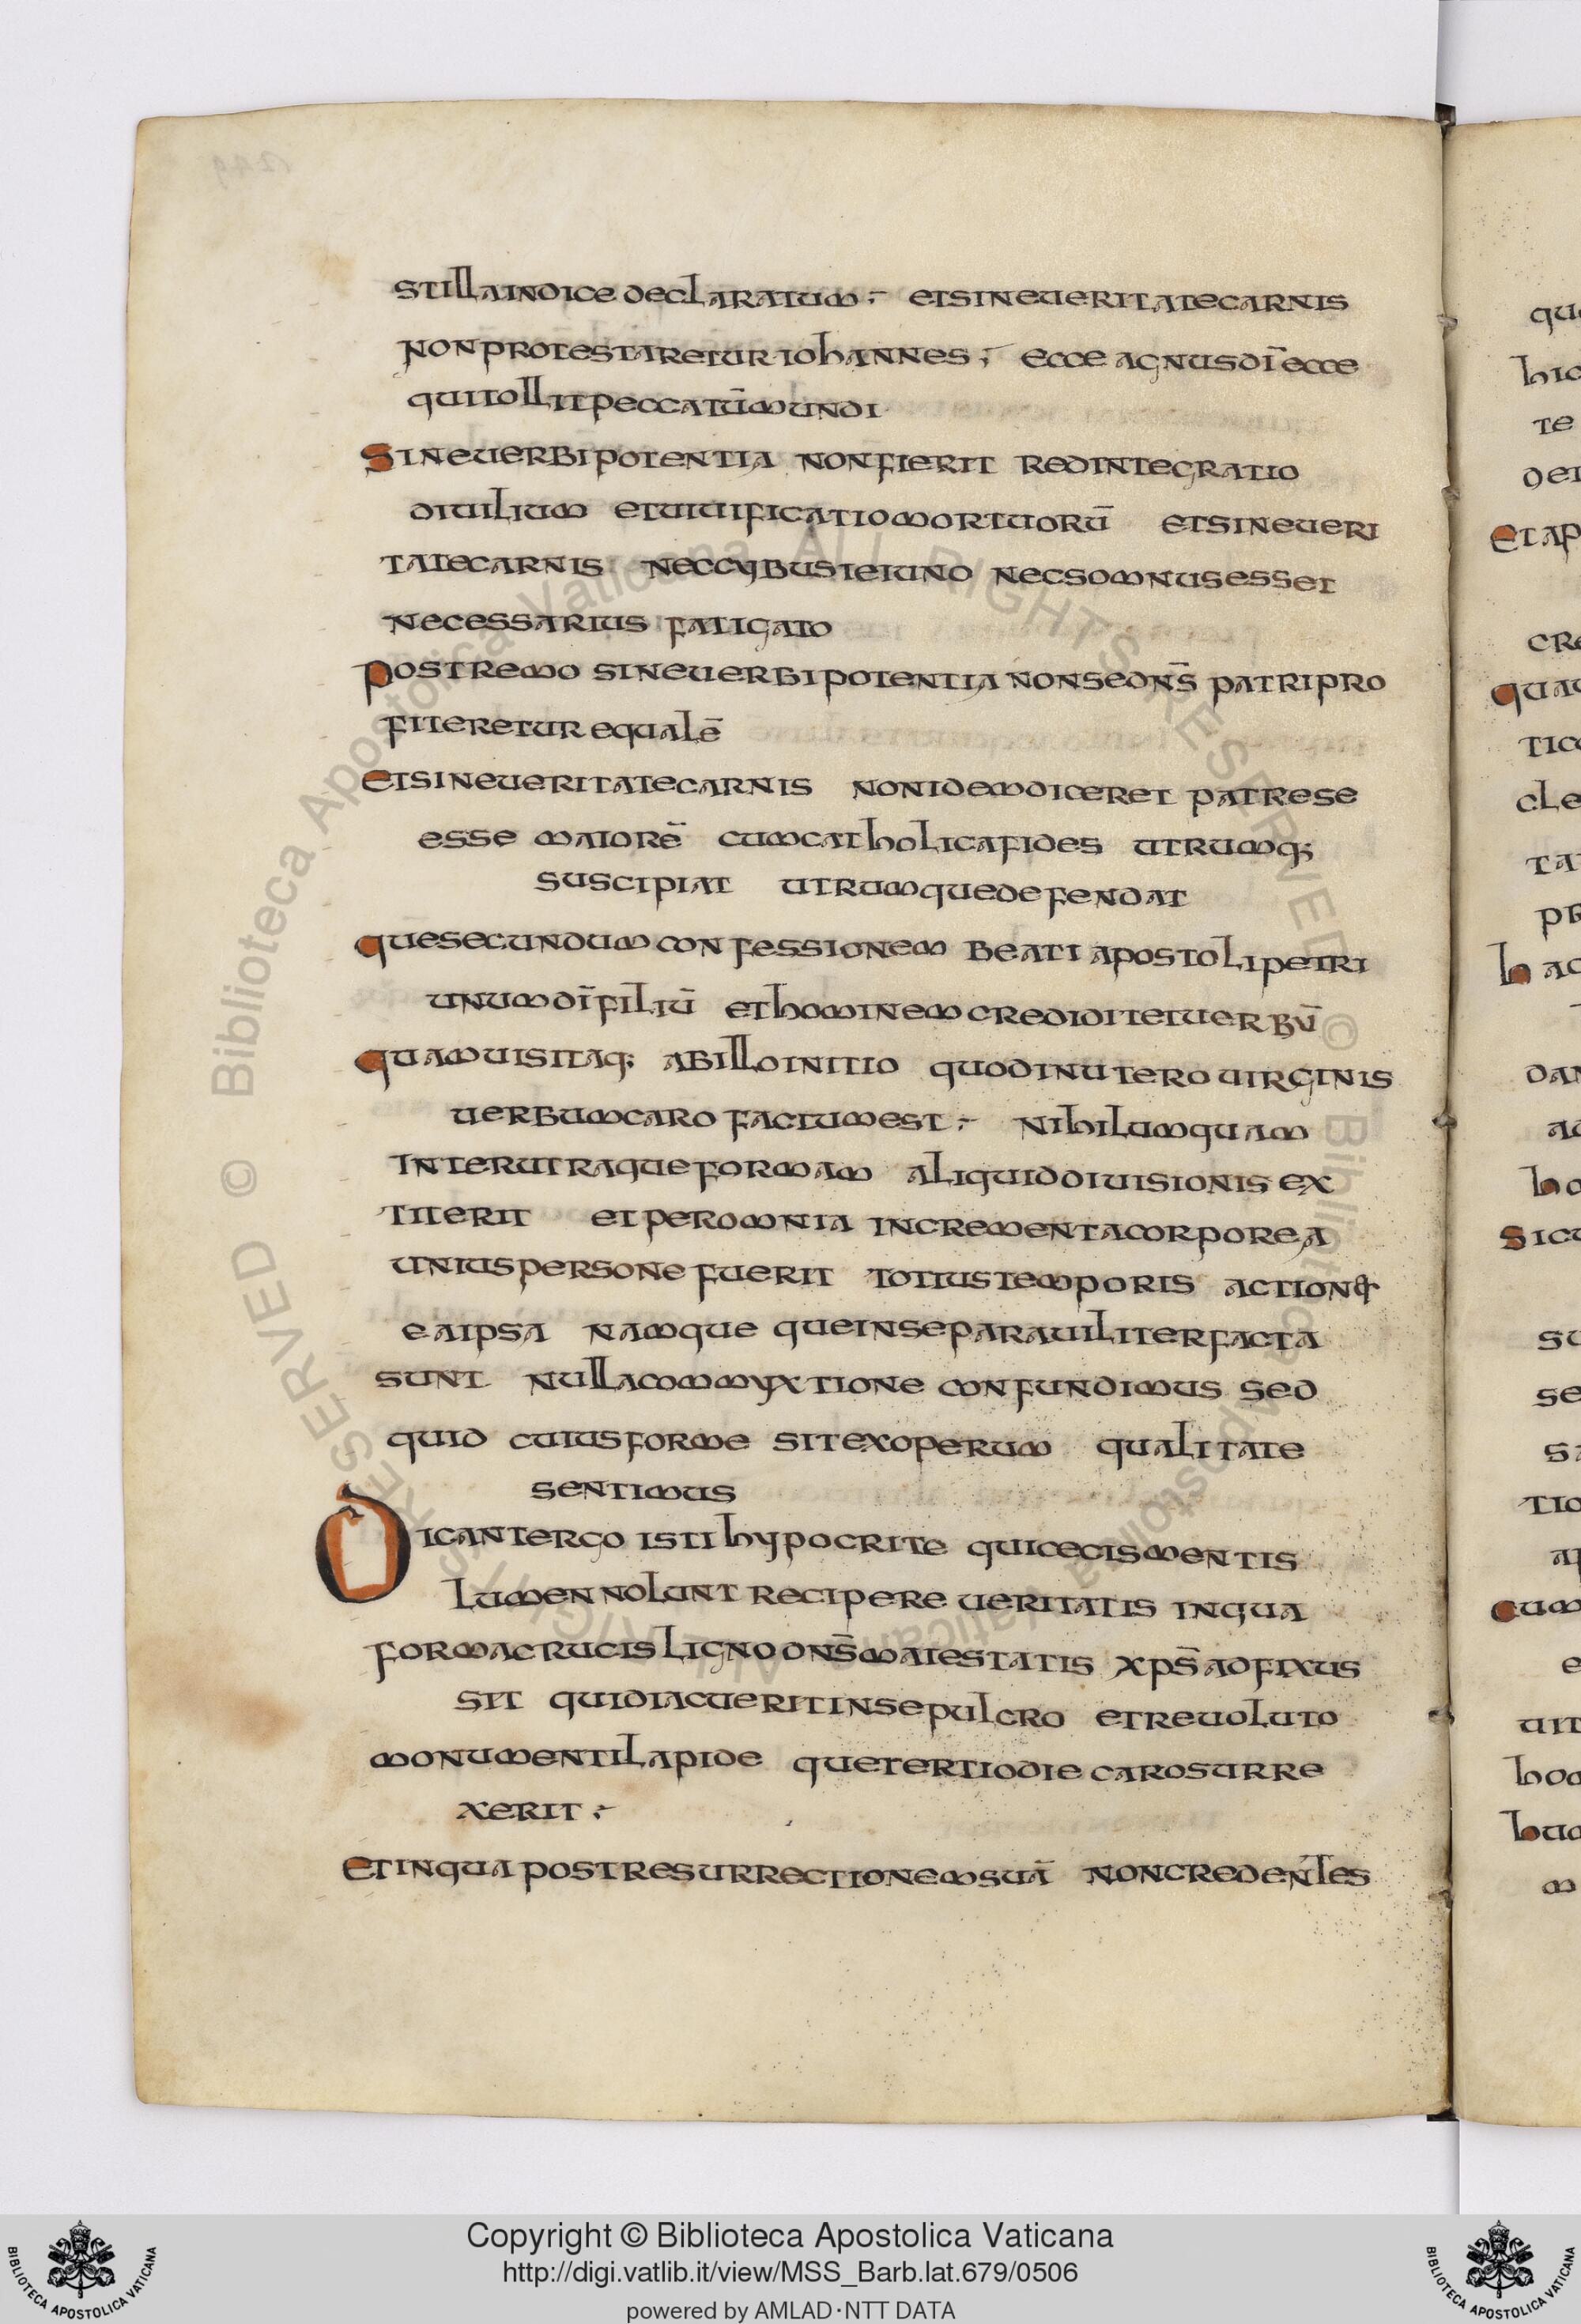 stillaindice declaratum · etsineueritatecarnis
nonprotestaretur iohannes · ecce agnusdī ecce
quitollitpeccatūmundi
Sineuerbipotentia nonfierit redintegratio
diuilium etuiuificatiomortuorū etsineueri
tatecarnis neccybusieiuno necsomnusesset
necessarius fatigato
postremo sineuerbipotentia nonsedn̄s patripro
fiteretur equalē
etsineueritatecarnis nonidemdiceret patrese
esse maiorē cumcatholicafides utrumq;
suscipiat utrumquedefendat
quesecundum confessionem beati apostolipetri
unumdīfiliū ethominemcredidit etuerbū
quamuisitaq; abilloinitio quodinuterouirginis
uerbumcaro factumest · nihilumquam
Interutraqueformam aliquiddiuisionis ex
titerit etperomnia incrementacorporea
uniuspersone fuerit totiustemporis actionę
eaipsa namque queinseparauiliterfacta
sunt nullacommyxtione confundimus sed
quid cuiusforme sitexoperum qualitate
sentimus
Dicantergo isti hypocrite quicecismentis
lumen nolunt recipere ueritatis inqua
formacrucisligno dn̄smaiestatis xp̄s adfixus
sit quidiacueritinsepulcro etreuoluto
monumentilapide quetertiodie carosurre
xerit ·
Etinqua postresurrectionemsuā noncredentes
Copyright © Biblioteca Apostolica Vaticana
http://digi.vatlib.it/view/MSS_Barb.lat.679/0506
powered by AMLAD·NTT DATA